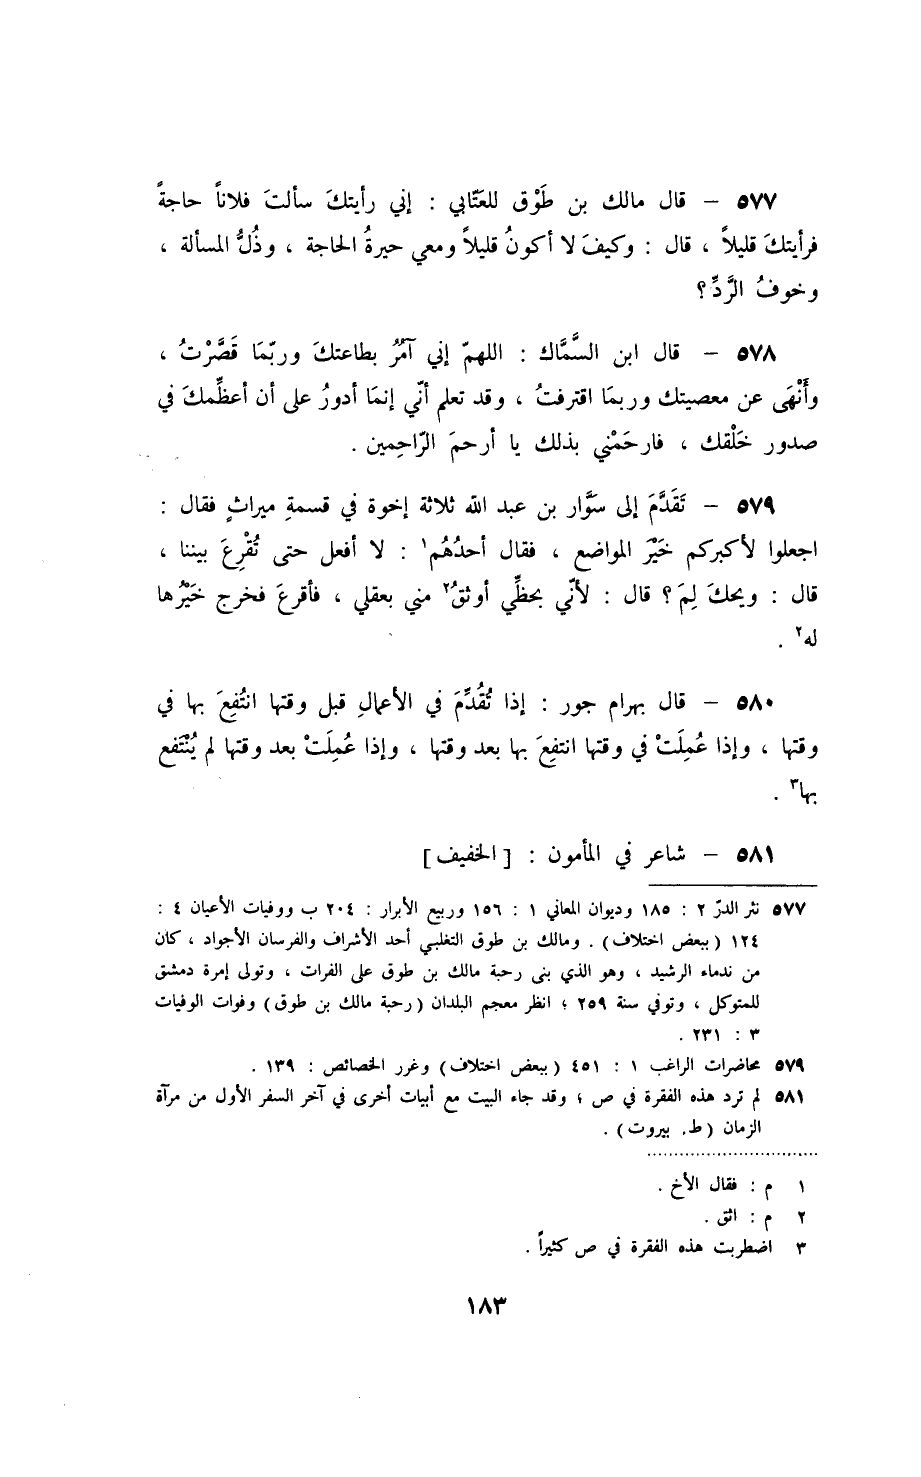 ٥٧٧ – قال مالك بن طَوْق للعَتّابي : إني رأيتكَ سألتَ فلاناً حاجةً
فرأيتكَ قليلاً ، قال : وكيفَ لا أكونُ قليلاً ومعي حيرةُ الحاجة ، وذُلُّ المسألة ،
وخوفُ الرَّدِّ؟
٥٧٨ – قال ابن السَّمَّاك : اللهمّ إني آمُرُ بطاعتكَ وربّمَا قَصَّرْتُ ،
وأَنْهَى عن معصيتك وربمَا اقترفتُ ، وقد تعلم أنّي إنمَا أدورُ على أن أعظِّمكَ في
صدور خَلْقك ، فارحَمْني بذلك يا أرحمَ الرّاحِمين .
٥٧٩ – تَقَدَّمَ إلى سَوَّار بن عبد الله ثلاثة إخوة في قسمةِ ميراثٍ فقال :
اجعلوا لأكبركم خَيْرَ المواضع ، فقال أحدُهُم١ : لا أفعل حتى تُقْرِعَ بيننا ،
قال : ويحكَ لِمَ؟ قال : لأنّي بحظّي أوثقُ٢ مني بعقلي ، فأقرعَ فخرج خَيْرُها
له٢ .
٥٨٠ – قال بهرام جور : إذا تُقُدِّمَ في الأعمالِ قبل وقتها انتُفِعَ بها في
وقتها ، وإذا عُمِلَتْ في وقتها انتفِعَ بها بعد وقتها ، وإذا عُمِلَتْ بعد وقتها لم يُنْتَفع
بها٣ .
٥٨١ – شاعر في المأمون : [الخفيف]
٥٧٧ نثر الدرّ ٢ : ١٨٥ وديوان المعاني ١ : ١٥٦ وربيع الأبرار : ٢٠٤ ب ووفيات الأعيان ٤ :
١٢٤ (ببعض اختلاف) . ومالك بن طوق التغلبي أحد الأشراف والفرسان الأجواد ، كان
من ندماء الرشيد ، وهو الذي بنى رحبة مالك بن طوق على الفرات ، وتولى إمرة دمشق
للمتوكل ، وتوفي سنة ٢٥٩ ؛ انظر معجم البلدان (رحبة مالك بن طوق) وفوات الوفيات
٣ : ٢٣١ .
٥٧٩ محاضرات الراغب ١ : ٤٥١ (ببعض اختلاف) وغرر الخصائص : ١٣٩ .
٥٨١ لم ترد هذه الفقرة في ص ؛ وقد جاء البيت مع أبيات أخرى في آخر السفر الأول من مرآة
الزمان (ط. بيروت) .
١ م : فقال الأخ .
٢ م : اثق .
٣ اضطربت هذه الفقرة في ص كثيراً .
١٨٣